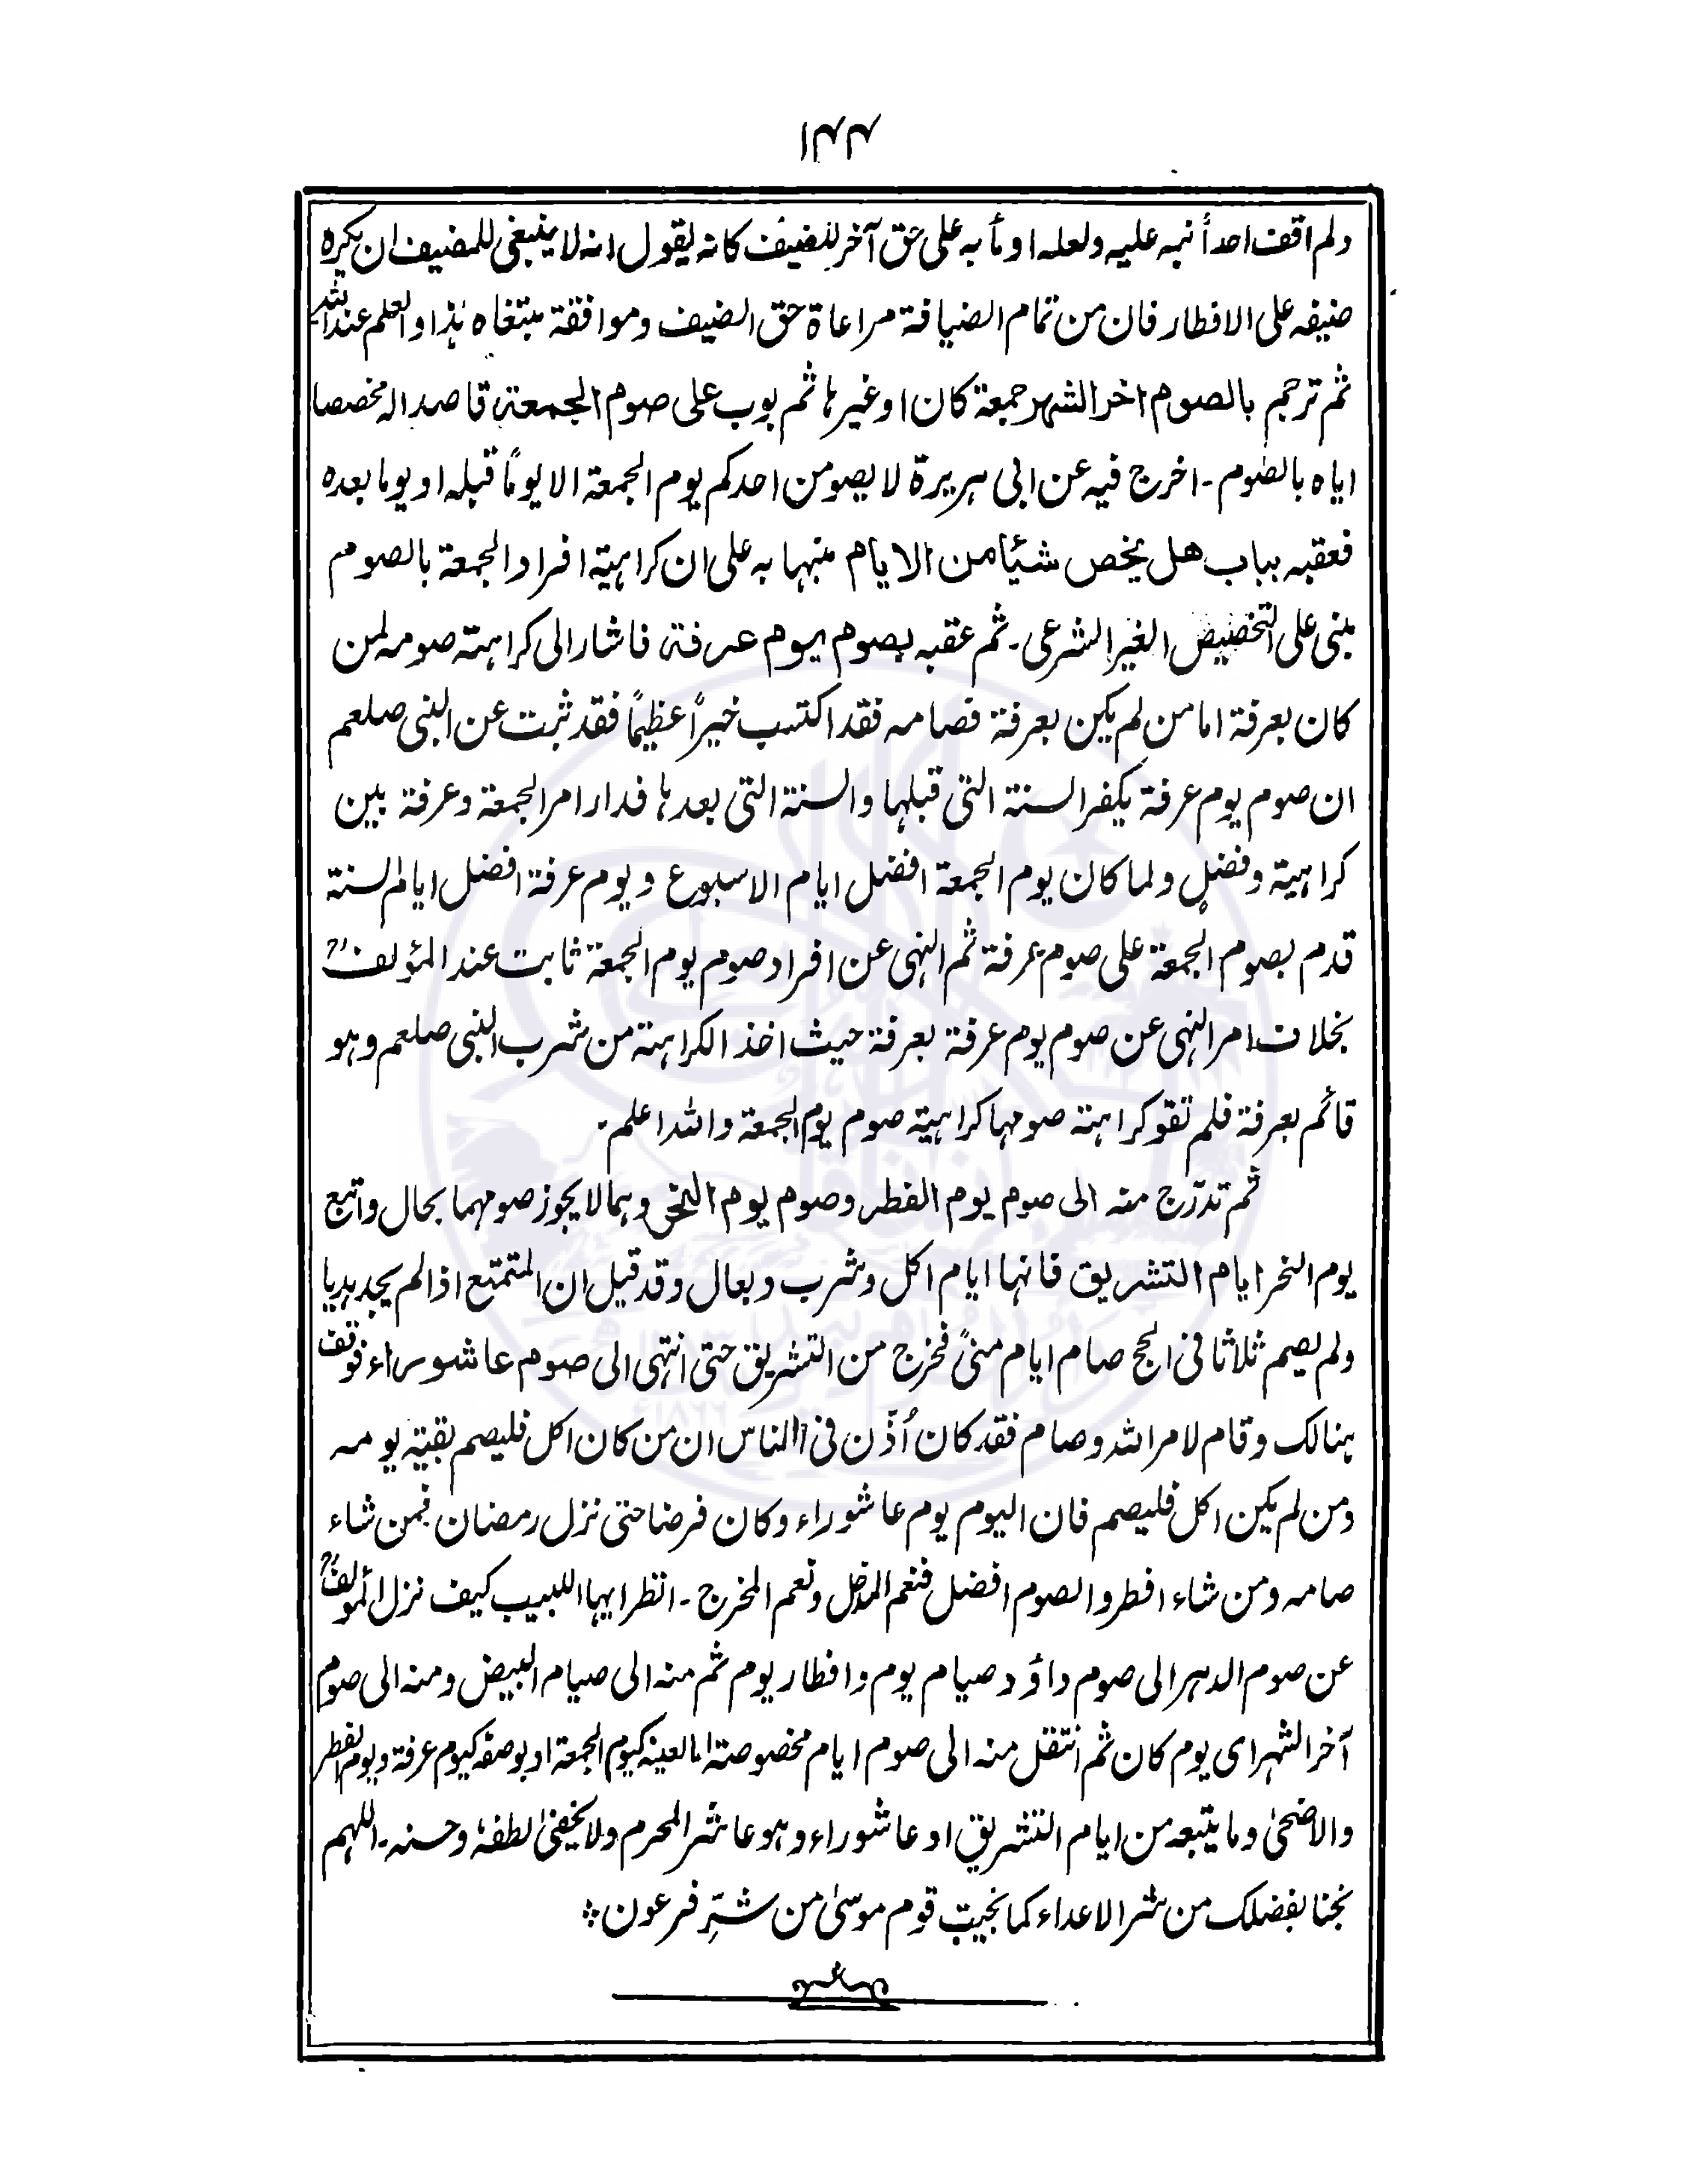 ۱۴۴
ولم اقف احداً نبه عليه ولعله اومأ به على حق آخر للضيف كانه يقول انه لا ينبغى للمضيف ان يكره
ضيفه على الافطار فان من تمام الضيافة مراعاة حق الضيف وموافقة مبتغاه هذا والعلم عند الله
ثم ترجم بالصوم اخر الشهر جمعة كان اوغيرها ثم بوب على صوم الجمعة قاصدا له مخصصا
اياه بالصوم ۔ اخرج فيه عن ابى هريرة لا يصومن احدكم يوم الجمعة الا يومًا قبله او يوما بعده
فعقبه بباب هل يخص شيئا من الايام منبها به على ان كراهية افراد الجمعة بالصوم
مبنى على التخصيص الغير الشرعى ۔ ثم عقبه بصوم يوم عرفة فاشار الى كراهته صومه لمن
كان بعرفة اما من لم يكن بعرفة فصامه فقد اكتسب خيراً عظيماً فقد ثبت عن النبى صلعم
ان صوم يوم عرفة يكفر السنة التى قبلها والسنة التى بعدها فدار امر الجمعة وعرفة بين
كراهية وفضلٍ ولما كان يوم الجمعة افضل ايام الاسبوع ويوم عرفة افضل ايام السنة
قدم بصوم الجمعة على صوم عرفة ثم النهى عن افراد صوم يوم الجمعة ثابت عند المؤلفؒ
بخلاف امر النهى عن صوم يوم عرفة بعرفة حيث اخذ الكراهته من شرب النبى صلعم وهو
قائم بعرفة فلم تقو كراهته صومها كراهية صوم يوم الجمعة والله اعلم ۔
ثم تدرّج منه الى صوم يوم الفطر وصوم يوم النحر وهما لا يجوز صومهما بحال واتبع
يوم النحر ايام التشريق فانها ايام اكل وشرب وبعال وقد قيل ان المتمتع اذا لم يجد هديا
ولم يصم ثلاثا فى الحج صام ايام منىً فخرج من التشريق حتى انتهى الى صوم عاشوراء فوقف
هنالك وقام لامر الله وصام فقد كان اُذّن فى الناس ان من كان اكل فليصم بقية يومه
ومن لم يكن اكل فليصم فان اليوم يوم عاشوراء وكان فرضا حتى نزل رمضان فمن شاء
صامه ومن شاء افطر والصوم افضل فنعم المدخل ونعم المخرج ۔ انظر ايها اللبيب كيف نزل المؤلفؒ
عن صوم الدهر الى صوم داؤد صيام يوم وافطار يوم ثم منه الى صيام البيض ومنه الى صوم
آخر الشهر اى يوم كان ثم انتقل منه الى صوم ايام مخصوصة اما لعينه كيوم الجمعة او بوصفه كيوم عرفة ويوم الفطر
والاضحىٰ وما يتبعه من ايام التشريق او عاشوراء وهو عاشر المحرم ولا يخفىٰ لطفهٗ وحسنه ۔ اللهم
نجنا بفضلك من شر الاعداء كما نجيت قوم موسىٰ من شرِّ فرعون ؞